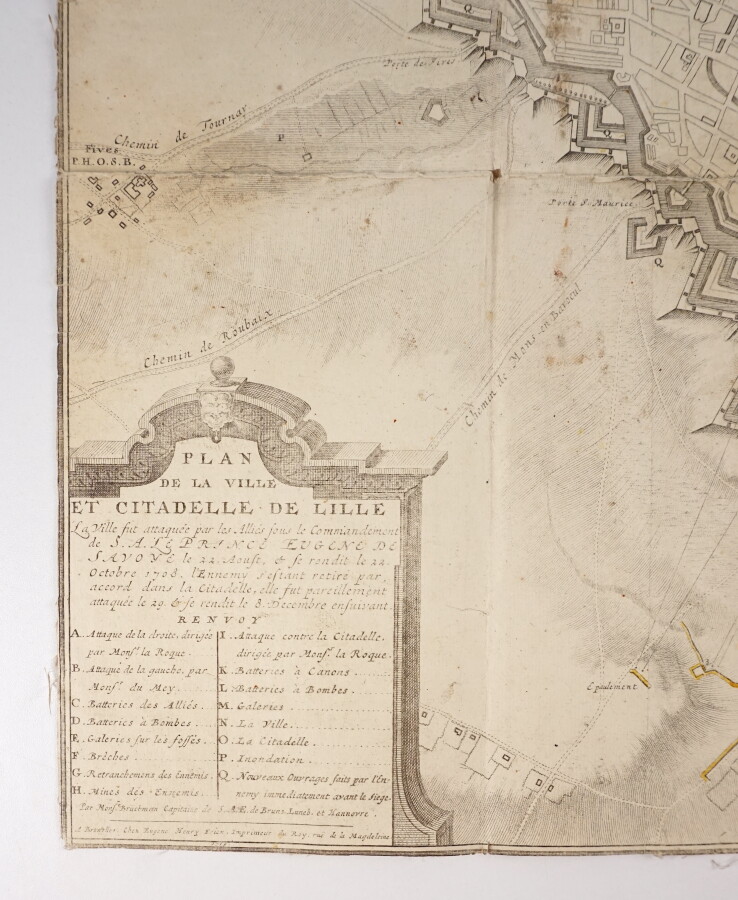 Q
Porte de Fives
Chemin de Tournay
P
Fives
P.H.O.S.B.
Q
Porte S. Maurice
Q
Chemin de Roubaix
Chemin de Mons-en-Baroeul
PLAN
DE LA VILLE
ET CITADELLE DE LILLE
La Ville fut attaquée par les Alliés sous le Commandement
de S. A. LE PRINCE EUGENE DE
SAVOYE le 22. Aoust, & se rendit le 22.
Octobre 1708. l'Ennemy s'estant retiré par
accord dans la Citadelle, elle fut pareillement
attaquée le 29. & se rendit le 8. Decembre ensuivant.
RENVOY
A. Attaque de la droite, dirigée
par Monsr. la Roque.
B. Attaque de la gauche, par
Monsr. du Mey.
C. Batteries des Alliés.
D. Batteries à Bombes.
E. Galeries sur les fossés.
F. Brêches.
G. Retranchemens des Ennemis.
H. Mines des Ennemis.
I. Attaque contre la Citadelle,
dirigée par Monsr. la Roque.
K. Batteries à Canons
L. Batteries à Bombes.
M. Galeries
N. La Ville
O. La Citadelle
P. Inondation
Q. Nouveaux Ouvrages faits par l'En-
nemy immediatement avant le Siege.
Par Monsr. Capitaine de S. A. E. de Bruns. Luneb. et Hannovre.
A Chez Eugene Henry Imprimeur du Roy, rue de la Magdeleine
Epaulement